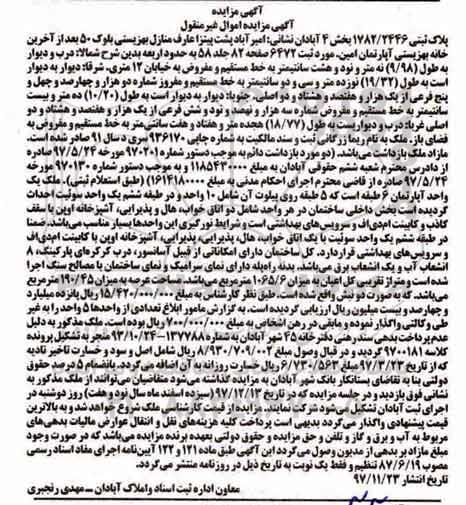 آگهی مزایده
آگهی مزایده اموال غیر منقول
پلاک ثبتی ۱۷۸۲/۲۴۴۶ بخش ۴ آبادان نشانی: امیرآباد پشت پیتزا عارف منازل بهزیستی بلوک ۵۰ بعد از آخرین
خانه بهزیستی آپارتمان امین. مورد ثبت ۶۴۷۲ صفحه ۸۲ جلد ۵۸ به حدود اربعه بدین شرح شمالا: درب و دیوار
به طول (۹/۹۸) نه متر و نود و هشت سانتیمتر به خط مستقیم و مفروض به خیابان ۱۲ متری. شرقا: دیوار به دیوار
است به طول (۱۹/۳۲) نوزده متر و سی و دو سانتیمتر به خط مستقیم و مفروز شماره دو هزار و چهارصد و چهل و
پنج فرعی از یک هزار و هفتصد و هشتاد و دو اصلی، جنوبا: دیوار به دیوار است به طول (۱۰/۲۰) ده متر و بیست
سانتیمتر به خط مستقیم و مفروض شماره سه هزار و نهصد و نود و شش فرعی از یک هزار و هفتصد و هشتاد و دو
اصلی غربا: درب و دیواریست به طول (۱۸/۷۷) هجده متر و هفتاد و هفت سانتیمتر به خط مستقیم و مفروض به
فضای باز. ملک به نام ریما زرگانی ثبت و سند مالکیت به شماره چاپی ۹۳۶۱۷۰ سری د سال ۹۱ صادر شده است.
مازاد ملک بازداشت می‌باشد. (دو مورد بازداشت دائم به موجب دستور شماره ۹۷۰۲۰۱ مورخه ۹۷/۵/۲۴ صادره
از دادرس محترم شعبه ششم حقوقی آبادان به مبلغ ۱۱۸۵۴۳۰۰۰۰ و به موجب دستور شماره ۹۷۰۱۳۰ مورخه
۹۷/۵/۲۴ صادره از قاضی محترم اجرای احکام مدنی به مبلغ ۱۶۱۴۱۸۰۰۰۰) (طبق استعلام ثبتی). ملک یک
واحد آپارتمان ۶ طبقه است که ۵ طبقه روی پیلوت آن شامل ۱۰ واحد و در طبقه ششم یک واحد سوئیت احداث
گردیده است بخش داخلی ساختمان در هر واحد شامل دو اتاق خواب، هال و پذیرایی، آشپزخانه اوپن با سقف
کاذب و کابینت ام‌دی‌اف و سرویس‌های بهداشتی است و شرایط نورگیری این واحدها بسیار مناسب می‌باشد. ضمنا
در طبقه ششم یک واحد سوئیت با یک اتاق خواب، هال، پذیرایی، پذیرایی، آشپزخانه اوپن با کابینت ام‌دی‌اف
و سرویس‌های بهداشتی قرار دارد. کل ساختمان دارای امکاناتی از قبیل آسانسور، درب کرکره‌ای پارکینگ، ۸
انشعاب آب و یک انشعاب برق می‌باشد. بدنه راه‌پله دارای نمای سرامیک و نمای ساختمان با مصالح سنگ اجرا
شده است و متراژ تقریبی کل اعیان به میزان ۱۰۶۵/۶ مترمربع می‌باشد. مساحت عرصه به میزان ۱۹۰/۴۵ مترمربع
می‌باشد. که به صورت دو نبش واقع شده است. طبق نظر کارشناس به مبلغ ۱۵/۴۲۰/۰۰۰/۰۰۰ ریال پانزده میلیارد
و چهارصد و بیست میلیون ریال ارزیابی گردیده است. به گزارش مامور ابلاغ تعدادی از واحدها ۵ واحد را به غیر
طی وکالتی واگذار نموده و مابقی در رهن اشخاص به مبلغ ۷۰۰/۰۰۰/۰۰۰ ریال بوده است. ملک مذکور به دلیل
عدم پرداخت بدهی سند رهنی دفترخانه ۴۵ آبادان به شماره ۱۳۷۷۸۸-۹۳/۱۰/۲۴ منجر به تشکیل پرونده
کلاسه ۹۷۰۰۱۸۱ گردید و در قبال وصول مبلغ ۸/۹۳۰/۷۰۹/۰۰۲ ریال شامل اصل و سود و خسارت تاخیر تادیه
که از تاریخ ۹۷/۳/۲۳ مبلغ ۶/۷۳۰/۵۶۳ ریال خسارت روزانه به آن اضافه می‌گردد. بانضمام ۵ درصد حقوق
دولتی بنا به تقاضای بستانکار بانک شهر آبادان به مزایده گذاشته می‌شود متقاضیان می‌توانند از ملک مذکور به
نشانی فوق بازدید و در جلسه مزایده که در تاریخ ۹۷/۱۲/۱۳ (سیزده اسفند ماه سال نود و هفت) روز دوشنبه در
اجرای ثبت آبادان تشکیل می‌شود شرکت نمایند. مزایده از قیمت کارشناسی ملک شروع خواهد شد و به بالاترین
قیمت پیشنهادی واگذار می‌گردد بدیهی است پرداخت کلیه هزینه‌های نقل و انتقال عوارض مالیات بدهی‌های
مربوط به آب و برق و گاز و تلفن و حق مزایده و حقوق دولتی بعهده برنده مزایده می‌باشد که در صورت وجود
مبلغ مازاد بر بدهی از مدیون وصول می‌گردد این آگهی طبق ماده ۱۲۱ و ۱۲۲ آیین‌نامه اجرای مفاد اسناد رسمی
مصوب ۸۷/۶/۱۹ تنظیم و فقط یک نوبت به تاریخ ذیل در روزنامه منتشر می‌گردد.
تاریخ انتشار ۹۷/۱۱/۲۳
معاون اداره ثبت اسناد و املاک آبادان – مهدی رنجبری